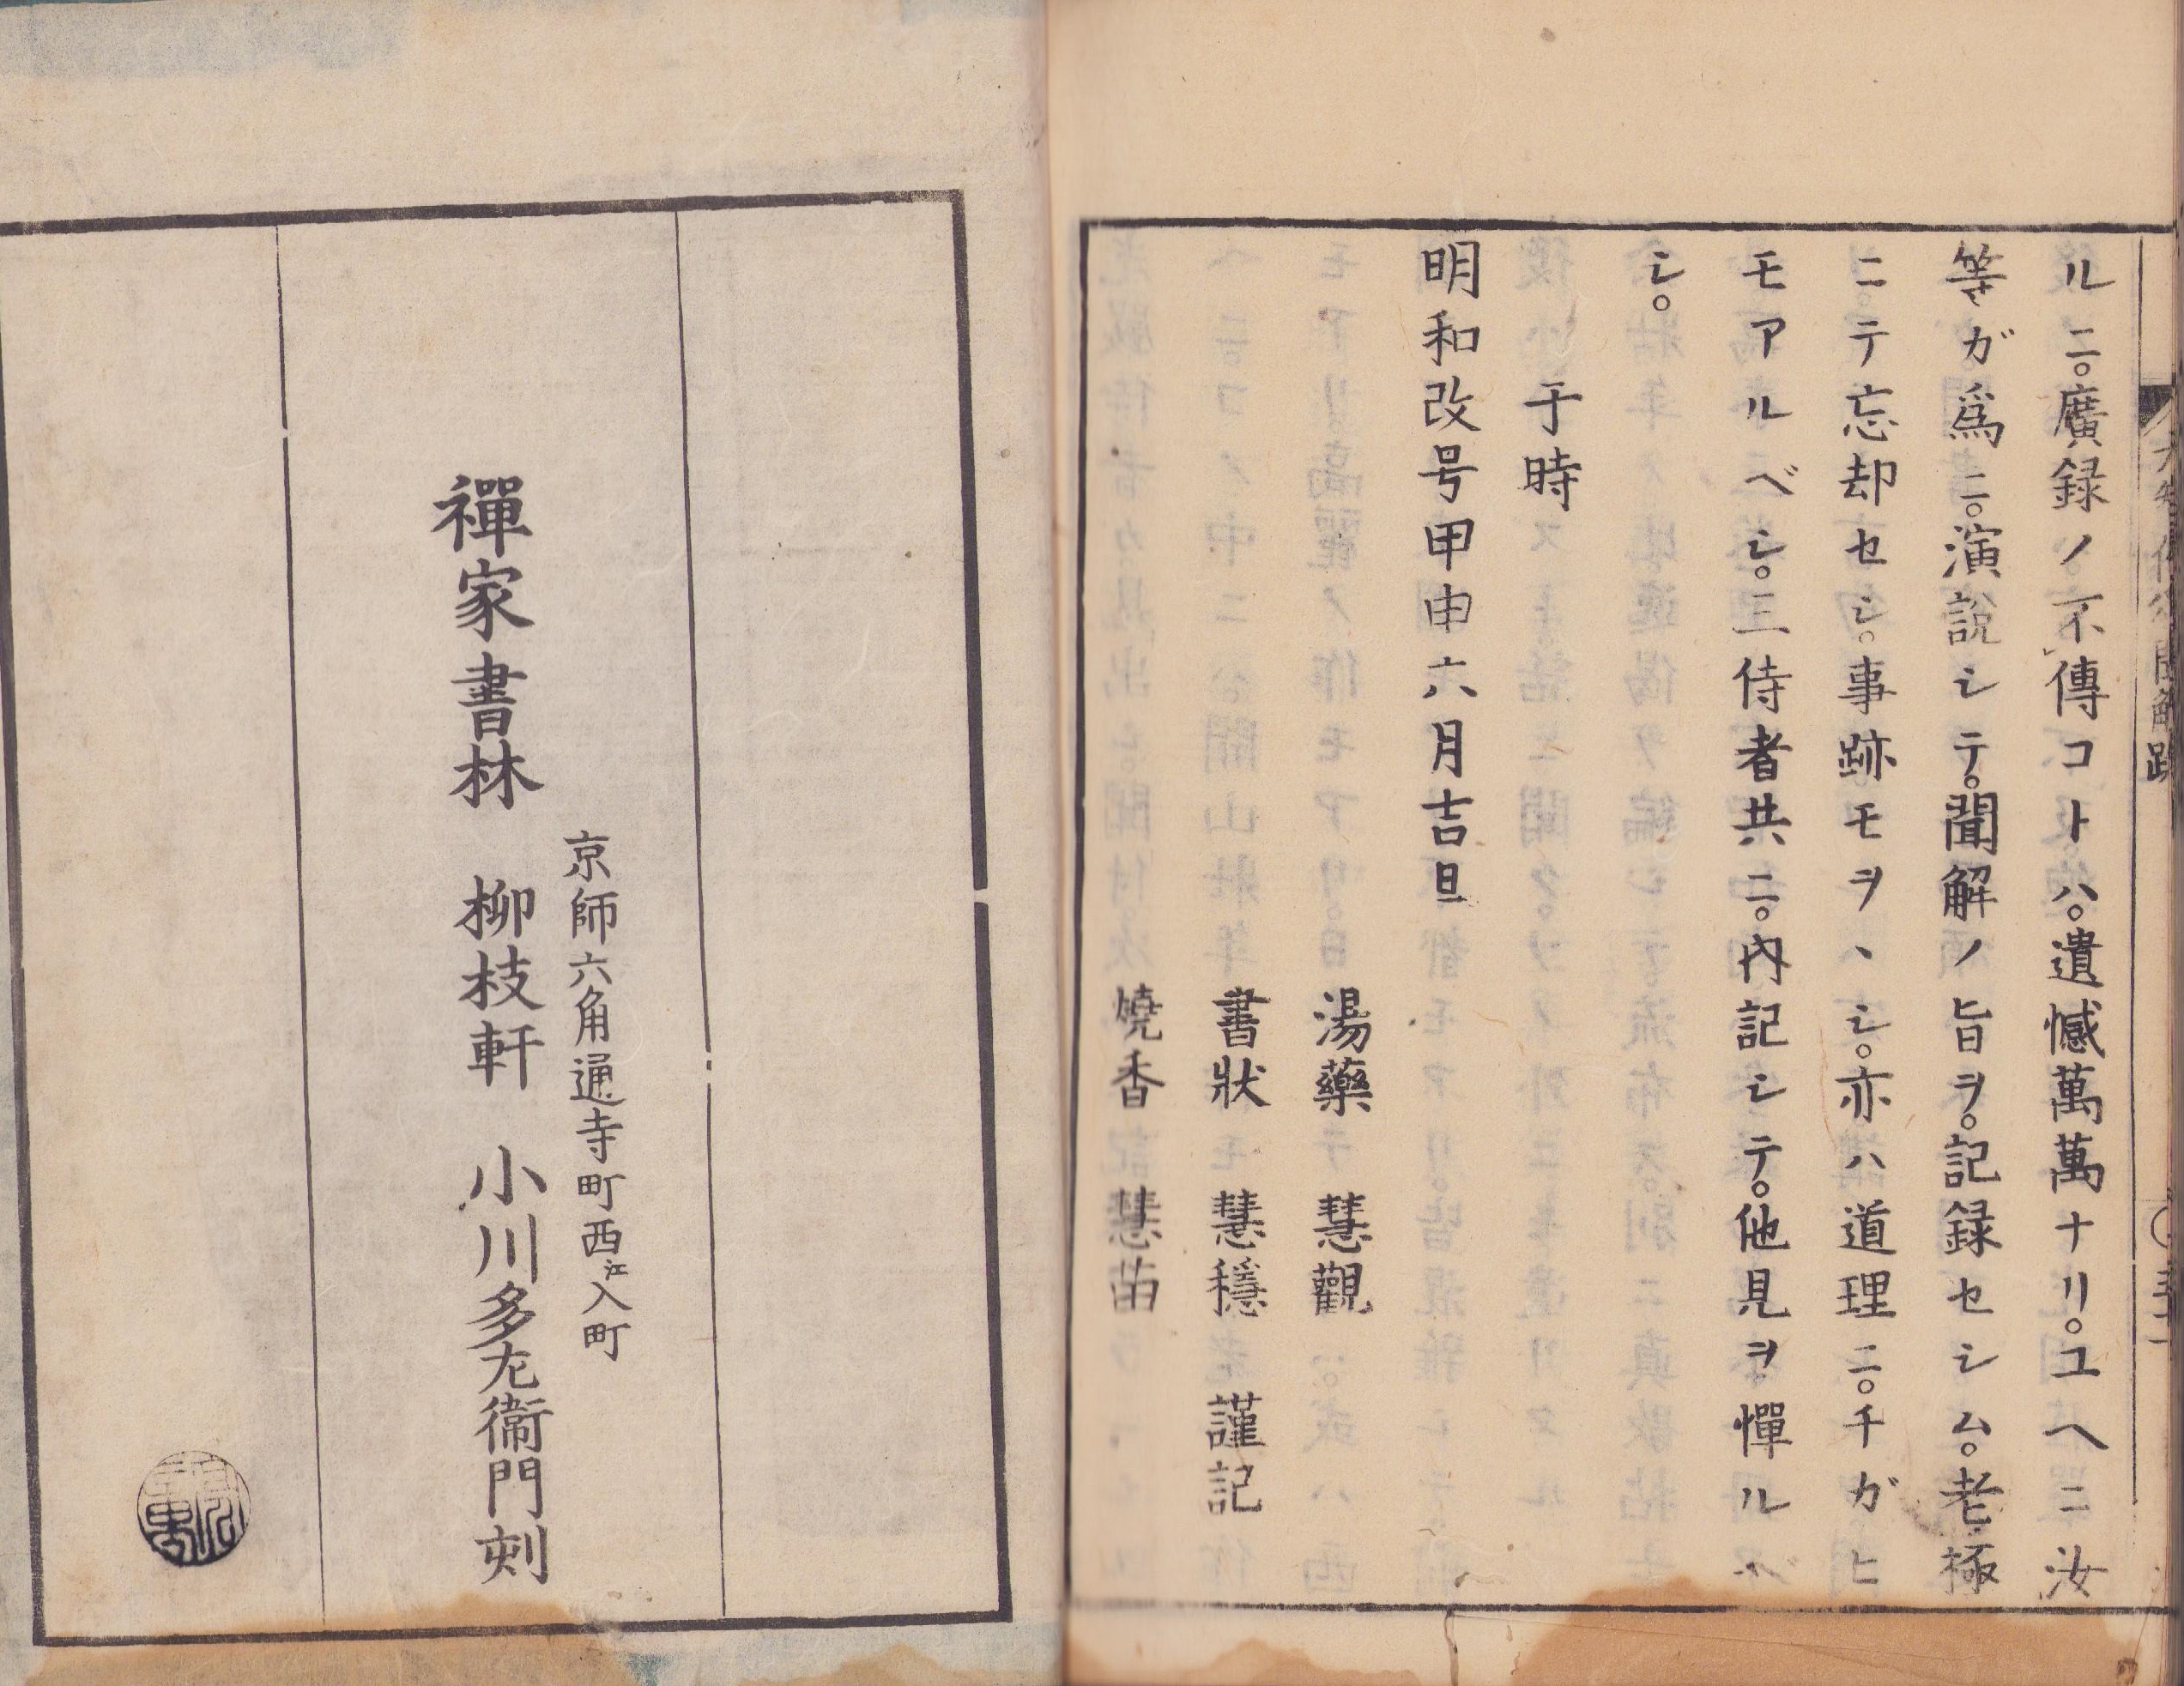 ルニ。廣録ノ不傳コトハ。遺憾萬萬ナリ。ユヘニ汝
等ガ爲ニ。演説シテ。聞解ノ旨ヲ。記録セシム。老極
ニテ忘却セシ。事跡モヲヽシ。亦ハ道理ニ。千ガヒ
モアルベシ。三侍者共ニ。内記シテ。他見ヲ憚ルベ
シ。
于時
明和改号甲申六月吉旦
湯藥 慧觀
書狀 慧穩 謹記
燒香 慧苗
京師六角通寺町西江入町
禪家書林 柳枝軒 小川多左衞門刻